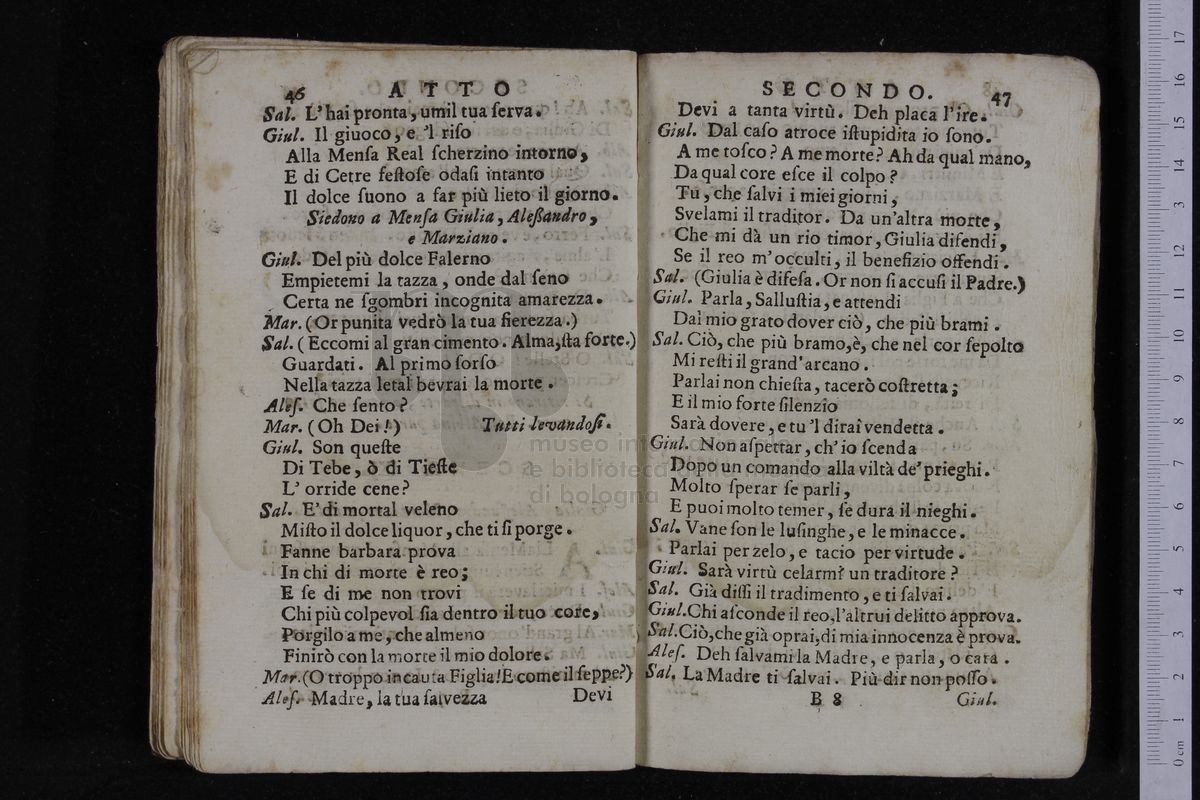 46 ATTO
Sal. L'hai pronta, umil tua ſerva.
Giul. Il giuoco, e 'l riſo
Alla Menſa Real ſcherzino intorno,
E di Cetre feſtoſe odaſi intanto
Il dolce ſuono a far più lieto il giorno.
Siedono a Menſa Giulia, Aleßandro,
e Marziano.
Giul. Del più dolce Falerno
Empietemi la tazza, onde dal ſeno
Certa ne ſgombri incognita amarezza.
Mar. (Or punita vedrò la tua fierezza.)
Sal. (Eccomi al gran cimento. Alma, ſta forte.)
Guardati. Al primo ſorſo
Nella tazza letal bevrai la morte.
Aleſ. Che ſento?
Mar. (Oh Dei!) Tutti levandoſi.
Giul. Son queſte
Di Tebe, ò di Tieſte
L'orride cene?
Sal. E' di mortal veleno
Miſto il dolce liquor, che ti ſi porge.
Fanne barbara prova
In chi di morte è reo;
E ſe di me non trovi
Chi più colpevol ſia dentro il tuo core,
Porgilo a me, che almeno
Finirò con la morte il mio dolore.
Mar. (O troppo incauta Figlia! E come il ſeppe?)
Aleſ. Madre, la tua ſalvezza
Devi
SECONDO. 47
Devi a tanta virtù. Deh placa l'ire.
Giul. Dal caſo atroce iſtupidita io ſono.
A me toſco? A me morte? Ah da qual mano,
Da qual core eſce il colpo?
Tu, che ſalvi i miei giorni,
Svelami il traditor. Da un'altra morte,
Che mi dà un rio timor, Giulia difendi,
Se il reo m'occulti, il benefizio offendi.
Sal. (Giulia è difeſa. Or non ſi accuſi il Padre.)
Giul. Parla, Salluſtia, e attendi
Dal mio grato dover ciò, che più brami.
Sal. Ciò, che più bramo, è, che nel cor ſepolto
Mi reſti il grand'arcano.
Parlai non chieſta, tacerò coſtretta;
E il mio forte ſilenzio
Sarà dovere, e tu 'l dirai vendetta.
Giul. Non aſpettar, ch'io ſcenda
Dopo un comando alla viltà de' prieghi.
Molto ſperar ſe parli,
E puoi molto temer, ſe dura il nieghi.
Sal. Vane ſon le luſinghe, e le minacce.
Parlai per zelo, e tacio per virtude.
Giul. Sarà virtù celarmi un traditore?
Sal. Già diſſi il tradimento, e ti ſalvai.
Giul. Chi aſconde il reo, l'altrui delitto approva.
Sal. Ciò, che già oprai, di mia innocenza è prova.
Aleſ. Deh ſalvami la Madre, e parla, o cara.
Sal. La Madre ti ſalvai. Più dir non poſſo.
B 8 Giul.